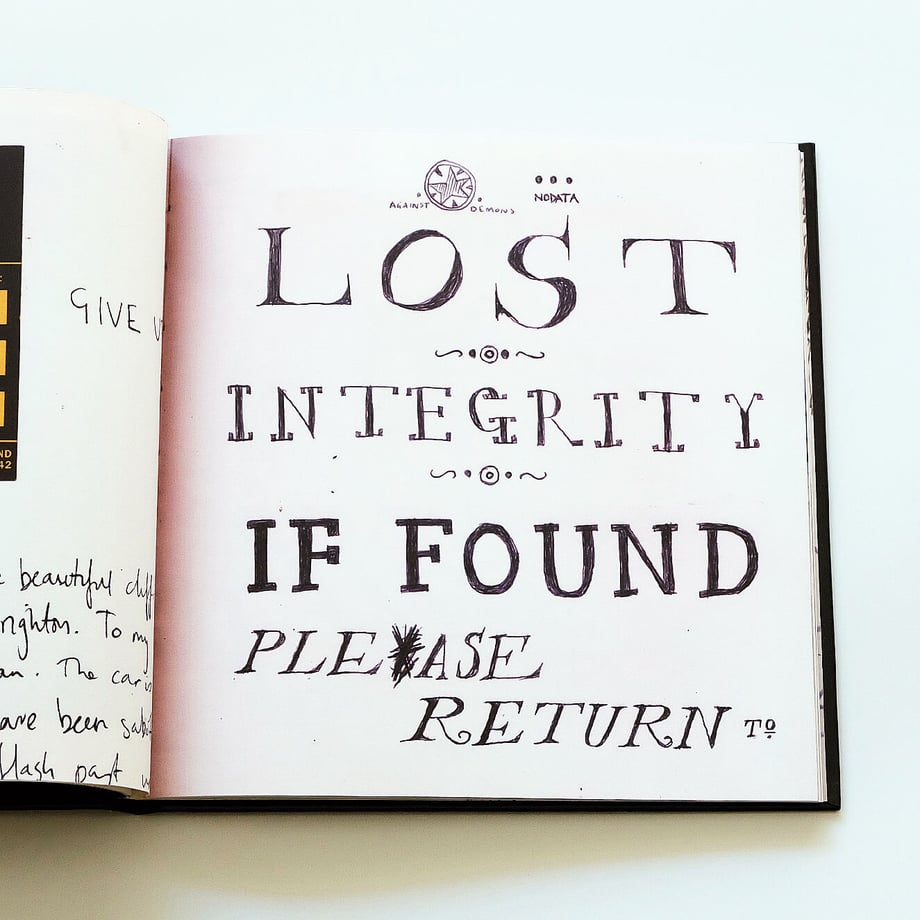 GIVE
beautiful
To my
The car
have been
flash past
AGAINST DEMONS
NODATA
LOST
INTEGRITY
IF FOUND
PLEASE
RETURN TO